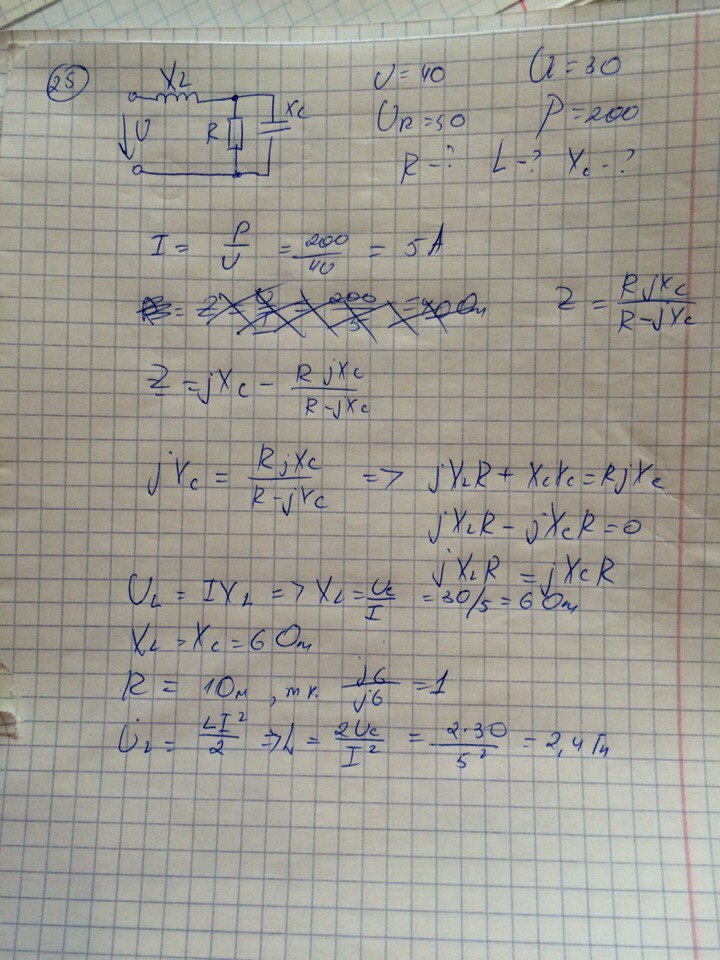 25
X₂ U = 40 U = 30
U R Xc U_R = 50 P = 200
R - ? L - ? Xc - ?
I = P/U = 200/40 = 5 A
Z = RjXc/(R-jXc)
Z = jXc - RjXc/(R-jXc)
jXc = RjXc/(R-jXc) => jX_LR + XcXc = RjXc
jX_LR - jXcR = 0
jX_LR = jXcR
U_L = IX_L => X_L = Uc/I = 30/5 = 6 Ом
X_L = Xc = 6 Ом
R = 1 Ом, т.к. j6/j6 = 1
U_L = LI²/2 => L = 2Uc/I² = 2·30/5² = 2,4 Гн